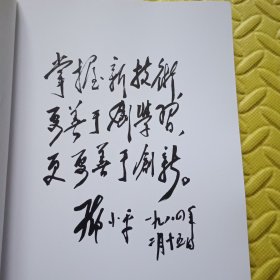 掌握新技術，
要善于學習，
更要善于創新。
邓小平
一九八四年
二月十五日